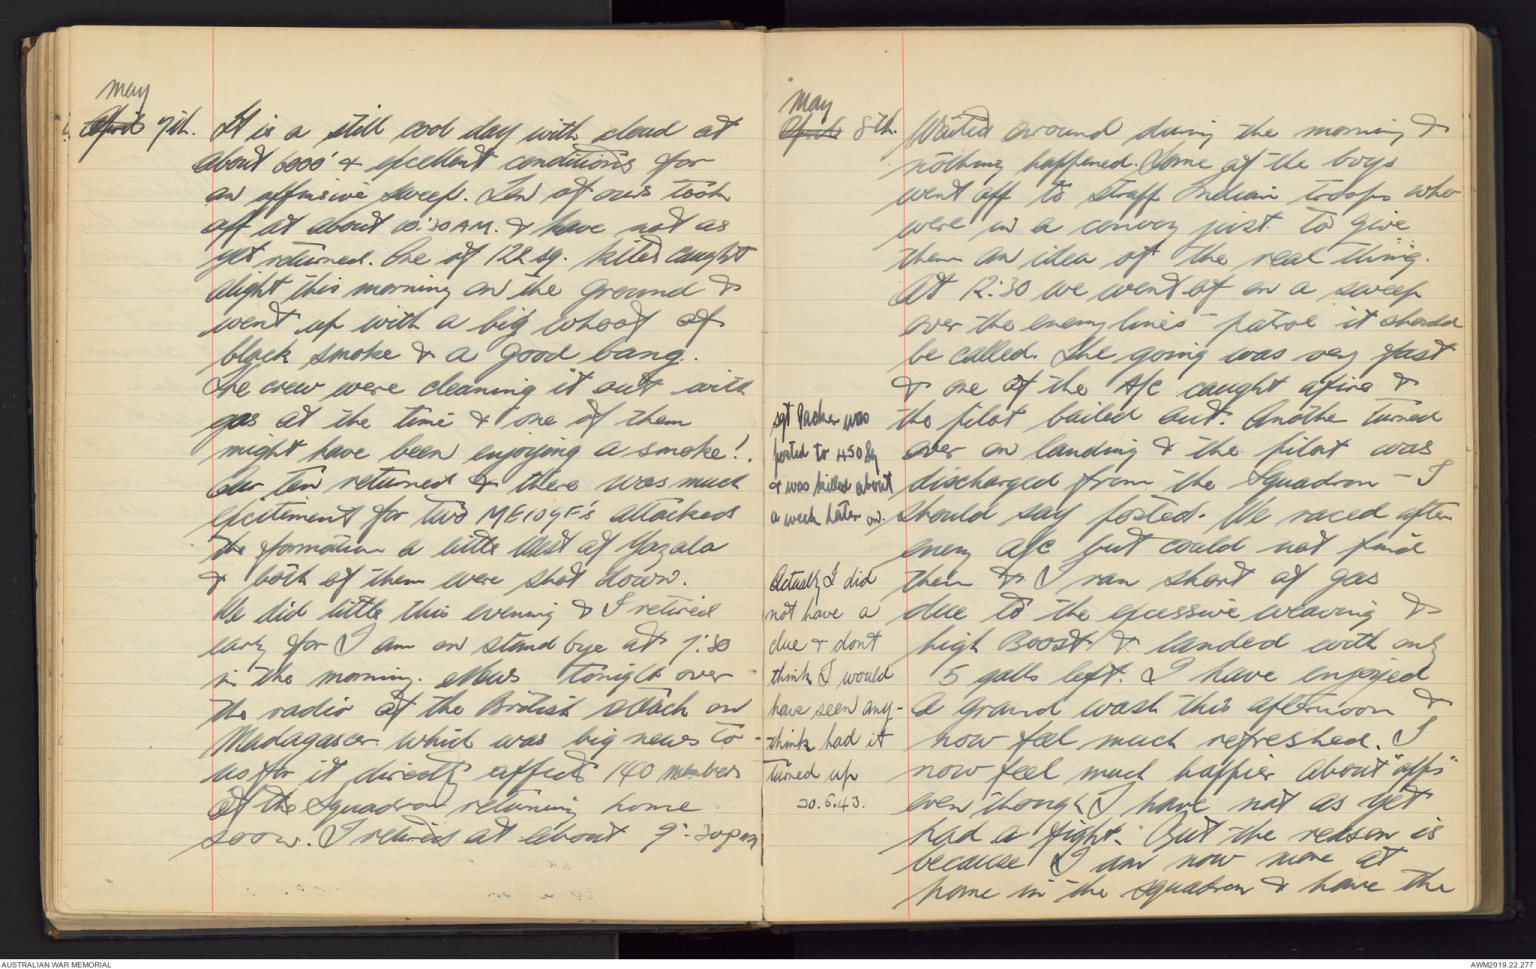 May
April 7th. It is a still cool day with cloud at
about 6000' & excellent conditions for
an offensive sweep. Ten of ours took
off at about 10:30 AM. & have not as
yet returned. One of 112 sq. kites caught
alight this morning on the ground &
went up with a big whoof of
black smoke & a good bang.
The crew were cleaning it out with
gas at the time & one of them
might have been enjoying a smoke!.
Our ten returned & there was much
excitement for two ME109F's attacked
the formation a little West of Gazala
& both of them were shot down.
We did little this evening & I retired
early for I am on stand bye at 7:30
in the morning. News tonight over
the radio of the British attack on
Madagascar which was big news to
us for it directly affects 140 members
of the Squadron returning home
soon. I retired at about 9:30pm
May
April 8th. Waited around during the morning &
nothing happened. Some of the boys
went off to straff Indian troops who
were in a convoy just to give
them an idea of the real thing.
At 12:30 we went of on a sweep
over the enemy lines - patrol it should
be called. The going was very fast
& one of the A/c caught afire &
the pilot bailed out. Another turned
over on landing & the pilot was
discharged from the Squadron - I
should say posted. We raced after
enemy a/c but could not find
them & I ran short of gas
due to the excessive weaving &
high Boost & landed with only
5 galls left. I have enjoyed
a grand wash this afternoon &
now feel much refreshed. I
now feel much happier about "opps"
even though I have not as yet
had a fight. But the reason is
because I am now more at
home in the squadron & have the
sgt Packer was
posted to 450 Sq
& was killed about
a week later on.
Actually I did
not have a
clue & don't
think I would
have seen any-
think had it
turned up
20.5.43.
AUSTRALIAN WAR MEMORIAL
AWM2019.22.277